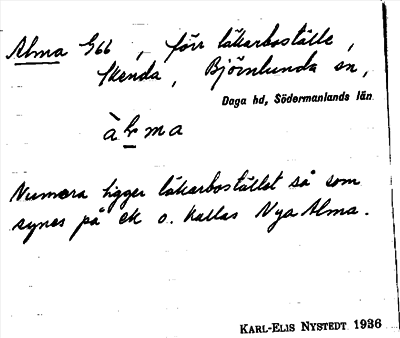 Alma G66, förr läkarboställe,
Skenda, Björnlunda sn,
Daga hd, Södermanlands län
Numera ligger läkarbostället så som
synes på ek o. kallas Nya Alma.
KARL-ELIS NYSTEDT 1936